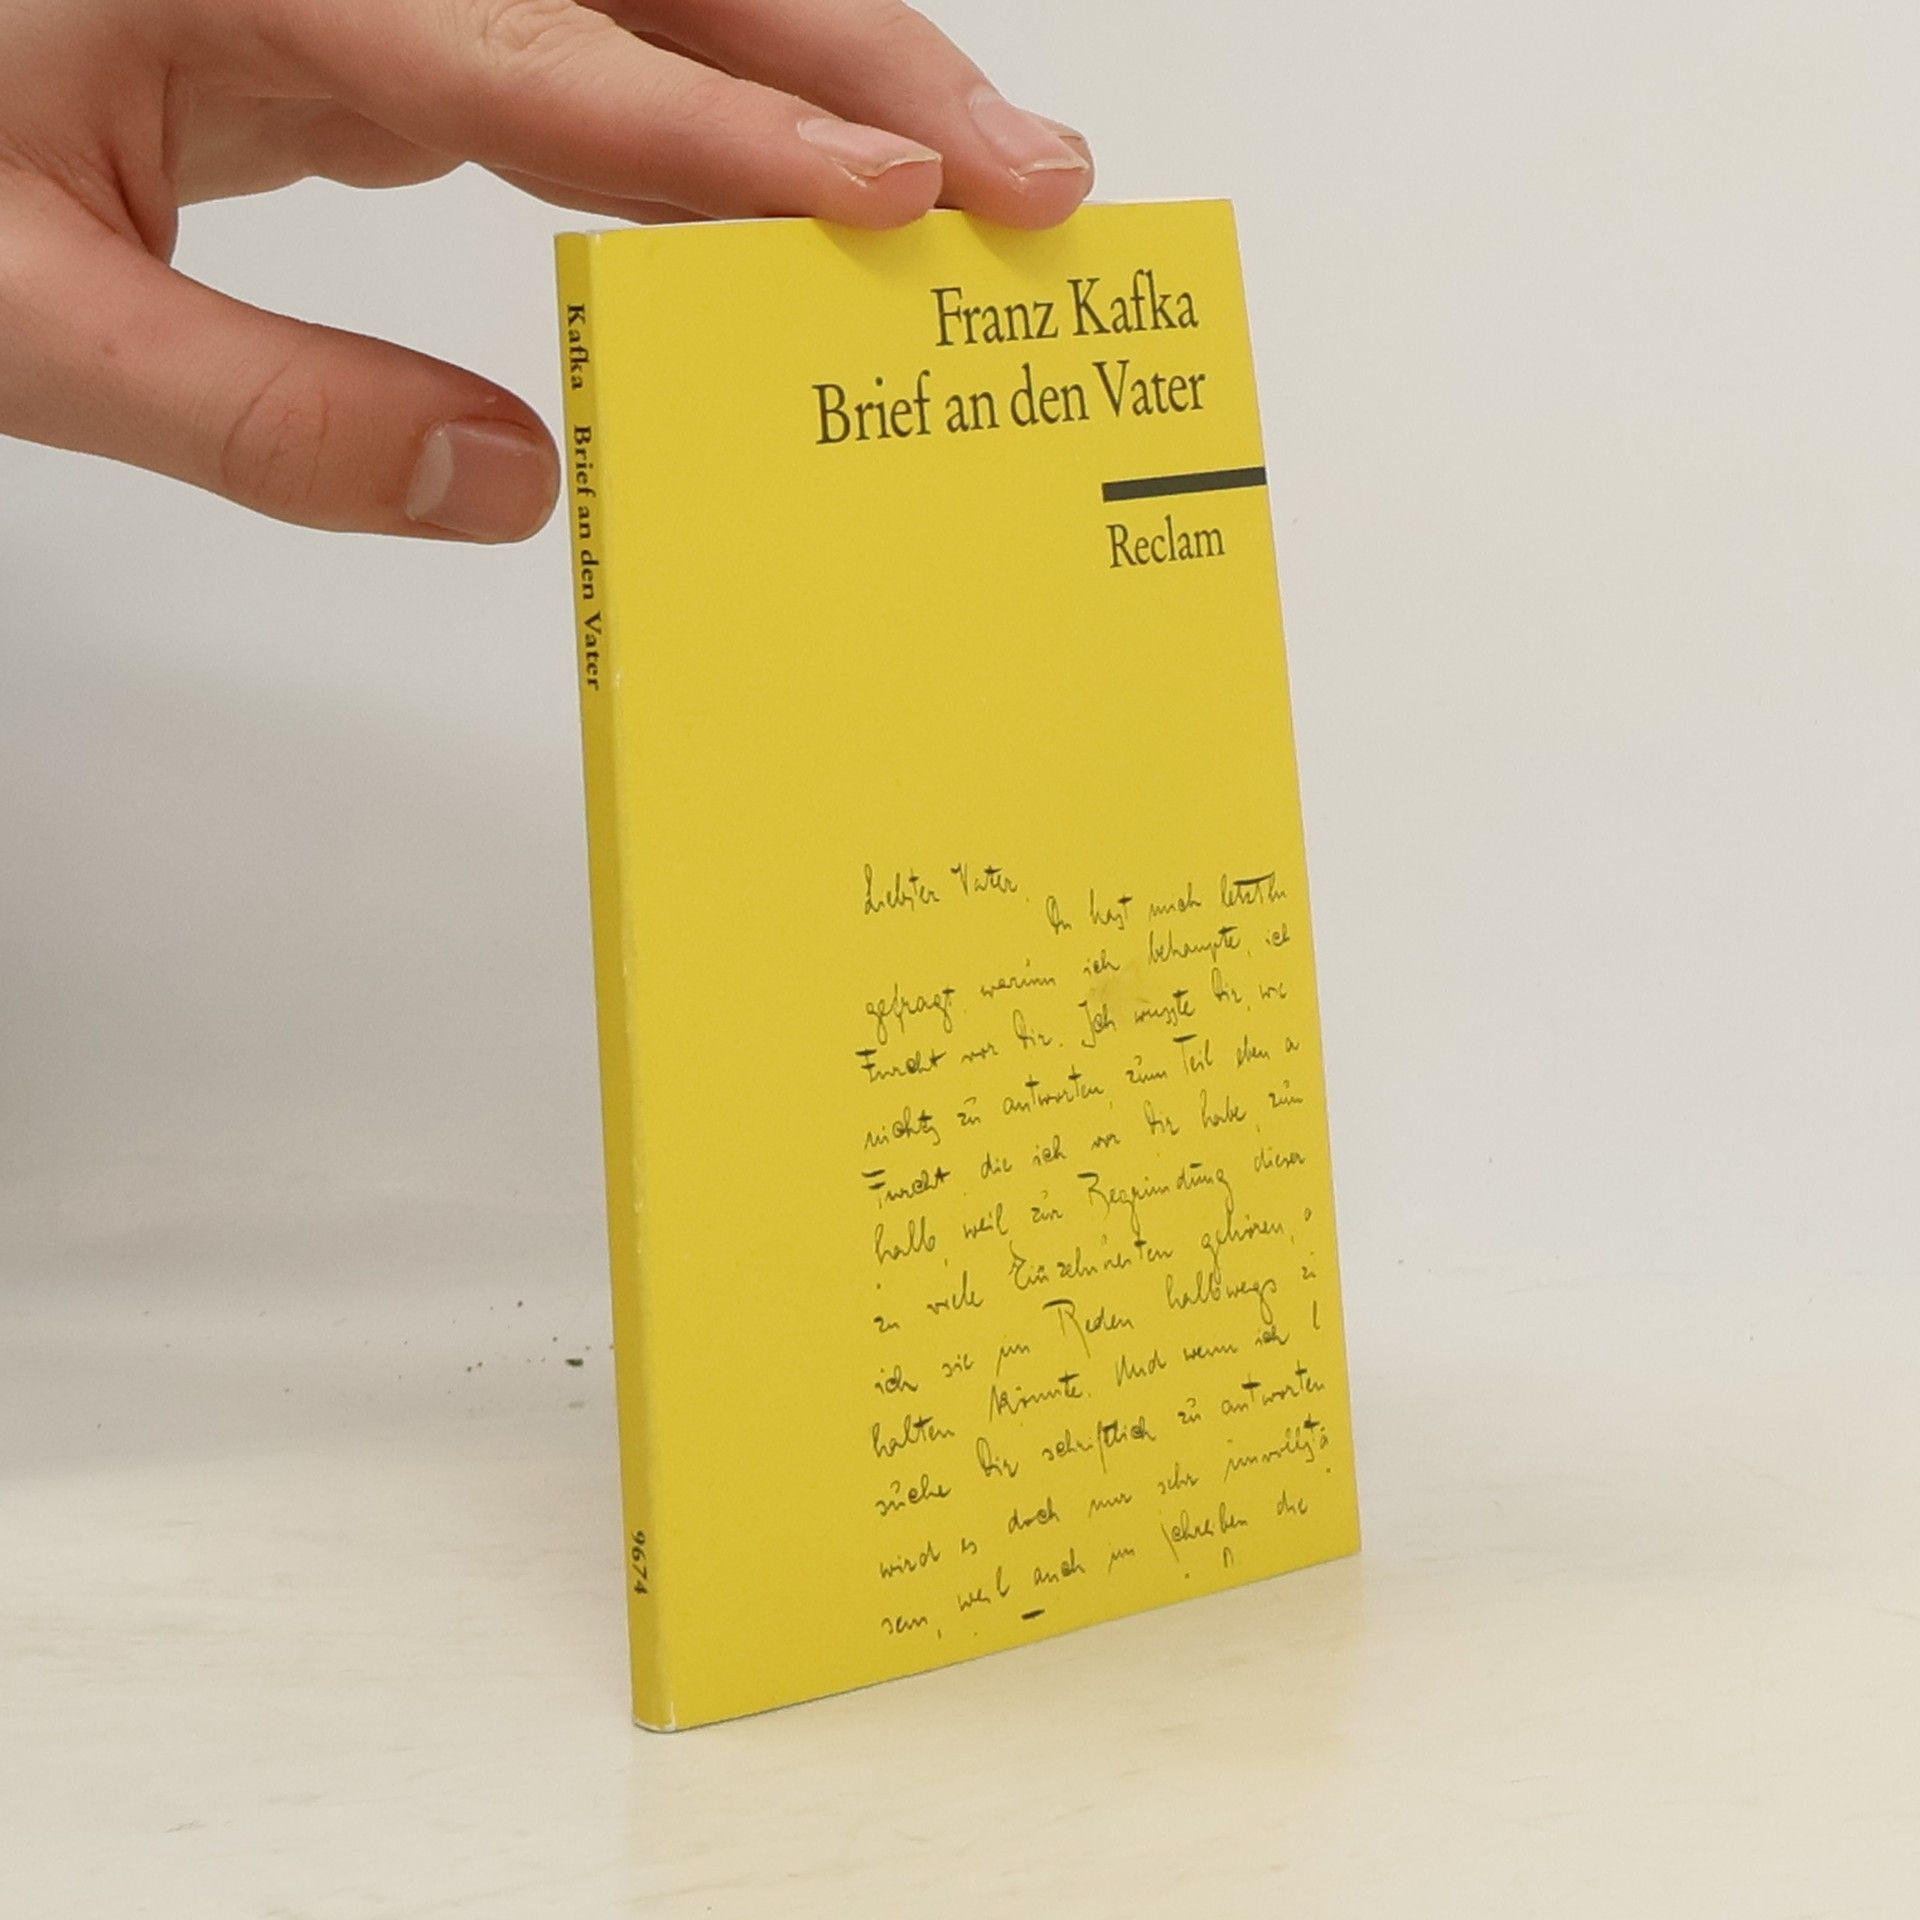 Franz Kafka
Brief an den Vater
Reclam
Kafka Brief an den Vater
9674
Liebster Vater,
Du hast mich letzthin
gefragt, warum ich behaupte, ich
Furcht vor Dir. Ich wusste Dir, wie
nichts zu antworten, zum Teil eben a
Furcht, die ich vor Dir habe, zum
halb, weil zur Begründung dieser
zu viele Einzelnheiten gehören, a
ich sie im Reden halbwegs z
halten könnte. Und wenn ich
suche Dir schriftlich zu antworten
wird es doch nur sehr unvollstä
sein, weil auch im Schreiben die